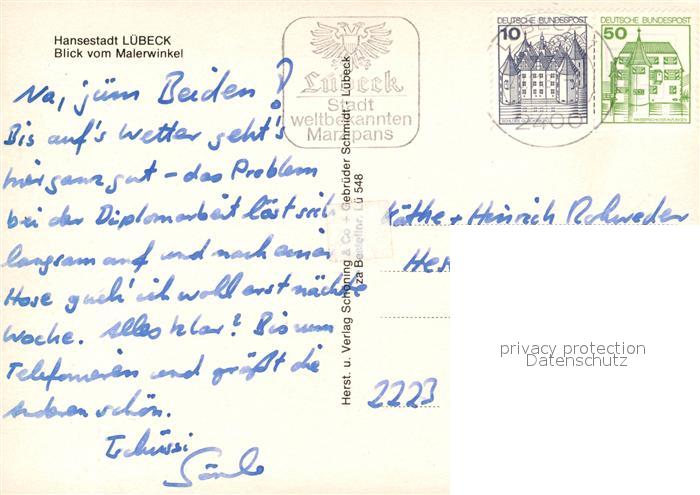 Hansestadt LÜBECK
Blick vom Malerwinkel
Na, jüm Beiden!
Bis auf's Wetter geht's
hier ganz gut - das Problem
bei der Diplomarbeit löst sich
langsam auf und nach einer
Hose guck' ich wohl erst nächste
Woche. Alles klar? Bis zum
Telefonieren und grüßt die
anderen schön.
Tschüssi
Lübeck
Stadt
weltbekannten
Marzipans
DEUTSCHE BUNDESPOST
10
DEUTSCHE BUNDESPOST
50
2400
Herst. u. Verlag Schöning & Co + Gebrüder Schmidt, Lübeck
Bestellnr. Lü 548
Käthe + Heinrich Rohweder
2223
privacy protection
Datenschutz